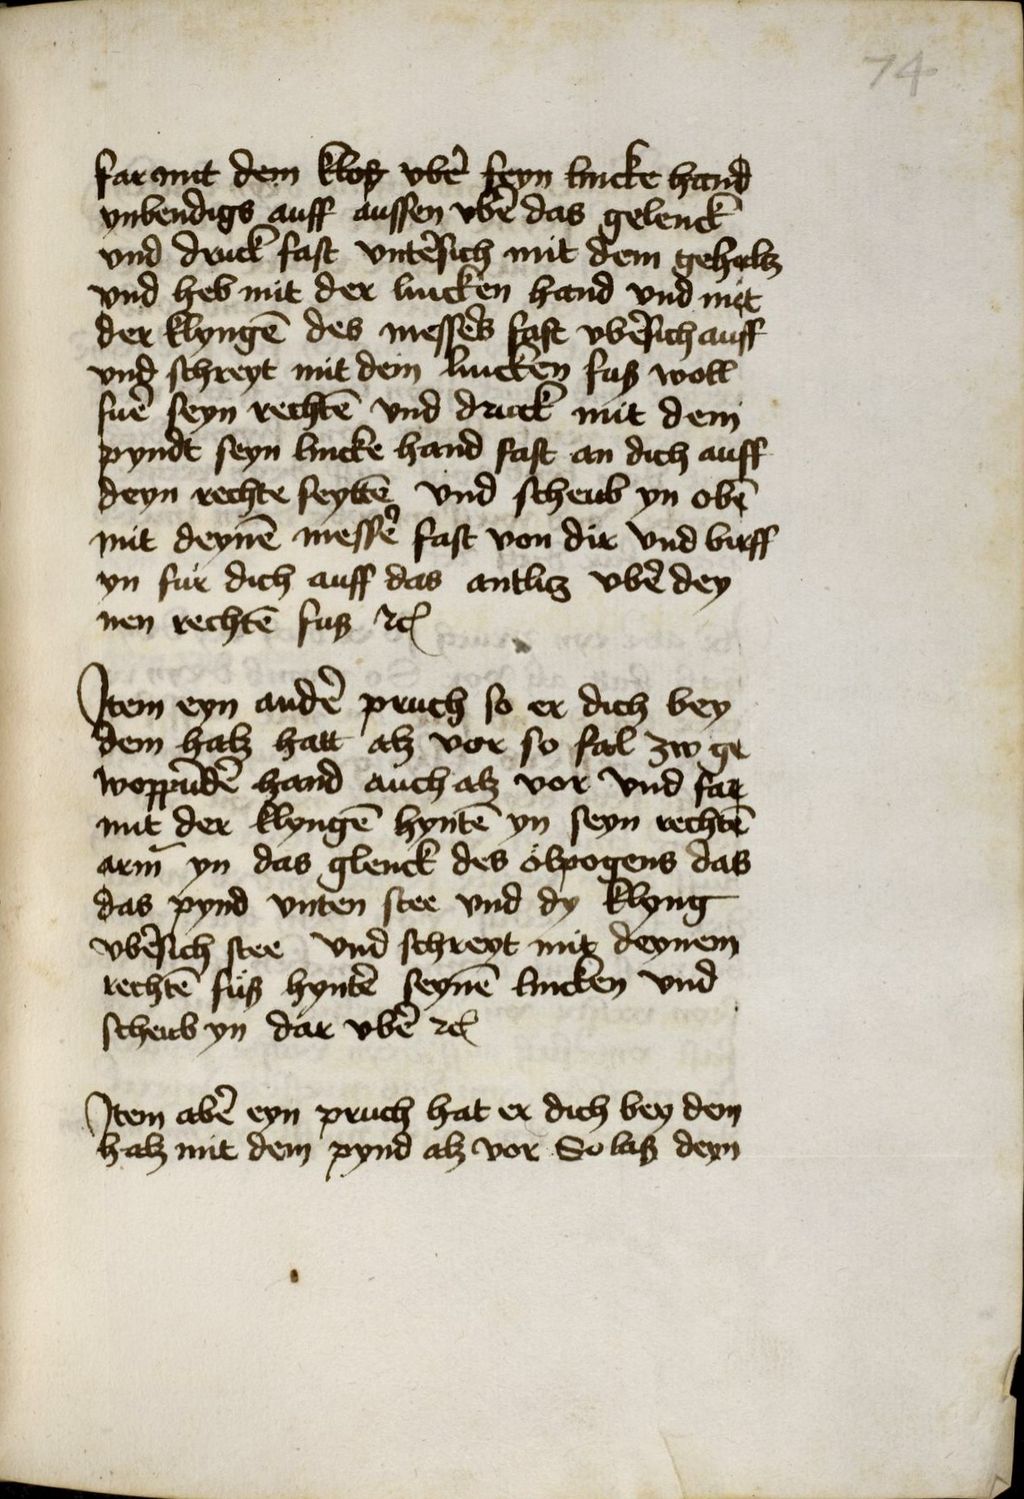 74
far mit dem kloß vber̄ seyn lincke hand
ynbendigs auff aussen vber̄ das gelenck
vnd druck fast vnter̄sich mit dem gehultz
vnd heb mit der lincken hand vnd mit
der klyngē des messers fast vber̄sich auff
vnd schreyt mit dein lincken fuß woll
fuer̄ seyn rechtē vnd druck mit dem
pyndt seyn lincke hand fast an dich auff
deyn rechte seyttē vnd scheub yn obē
mit deynē messer̄ fast von dir vnd birff
yn fur dich auff das antlitz vber̄ dey
nen rechtē fuß ꝛc
Item eyn ander̄ pruch so er dich bey
dem halß hatt alß vor so fal zw ge
woppēdē hand auch alß vor vnd far
mit der klyngē hyntē yn seyn rechtē
arm̄ yn das glenck des ölpogens das
das pynd vnten stee vnd dy klyng
vber̄sich stee vnd schreyt mit deynem
rechtē fuß hynter̄ seynē lincken vnd
scheub yn dar vber̄ ꝛc
Item aber̄ eyn pruch hat er dich bey dem
halß mit dem pynd alß vor So laß deyn